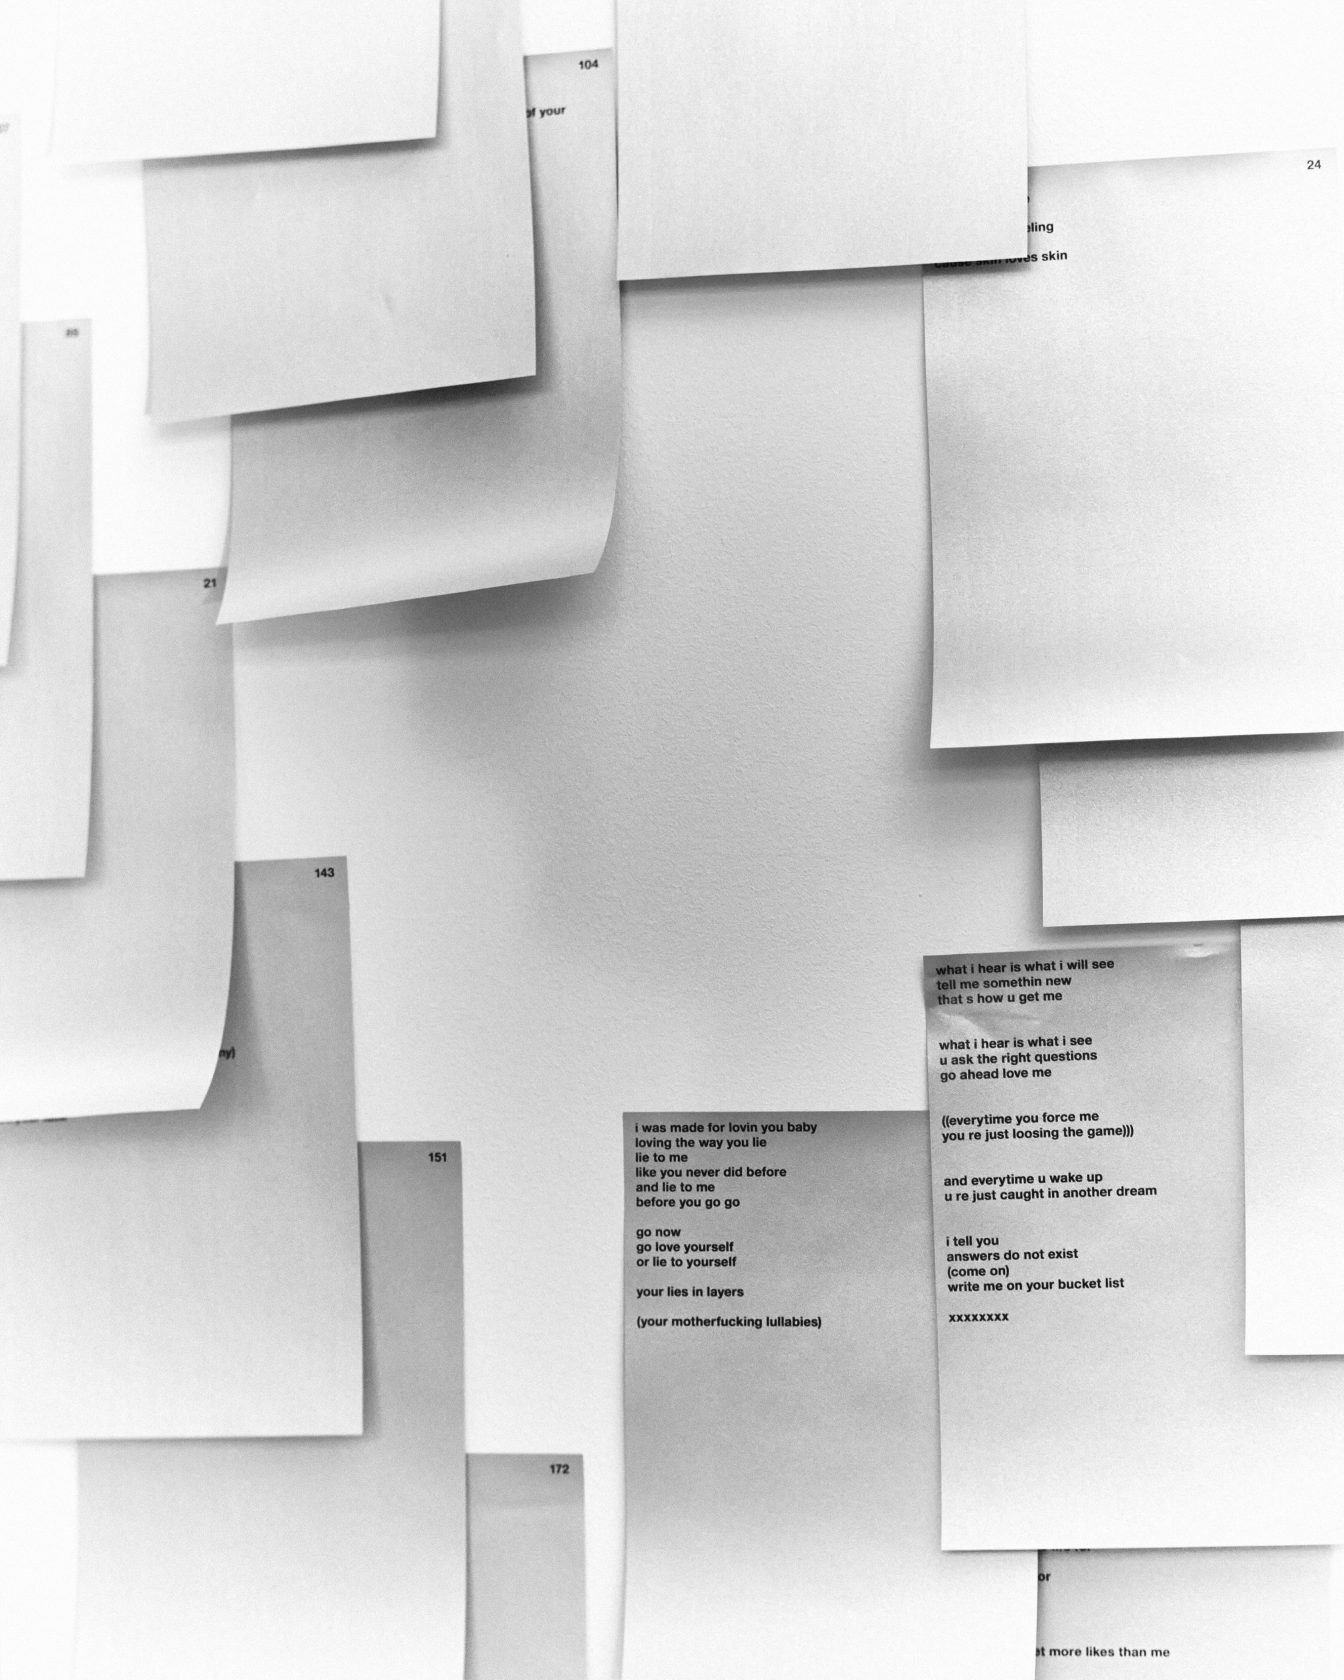 104
of your
24
skin loves skin
21
143
151
172
what i hear is what i will see
tell me somethin new
that s how u get me
what i hear is what i see
u ask the right questions
go ahead love me
((everytime you force me
you re just loosing the game)))
and everytime u wake up
u re just caught in another dream
i tell you
answers do not exist
(come on)
write me on your bucket list
xxxxxxxx
i was made for lovin you baby
loving the way you lie
lie to me
like you never did before
and lie to me
before you go go
go now
go love yourself
or lie to yourself
your lies in layers
(your motherfucking lullabies)
or
more likes than me